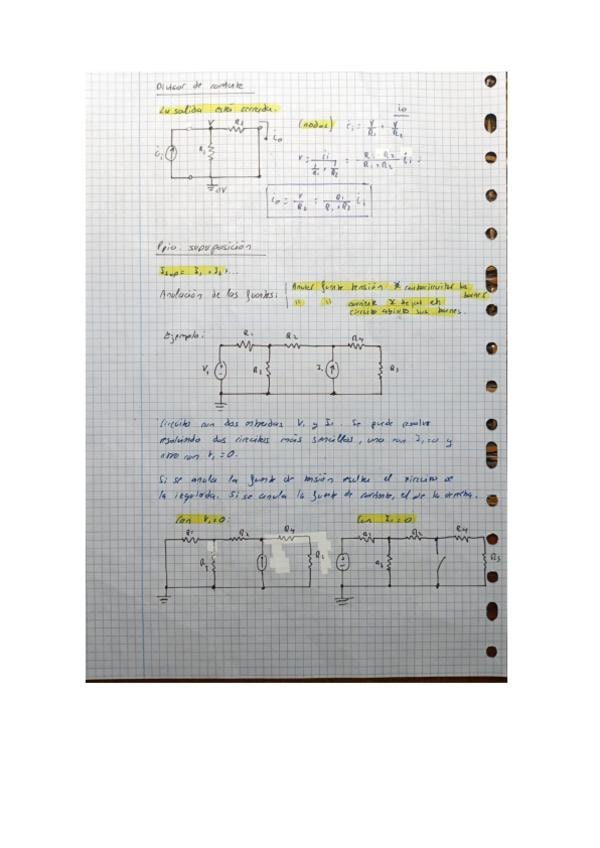 Divisor de corriente
La salida está cerrada.
(nodos) i₁ = V/R₁ + V/R₂
i₀
V R₂
i₁ R₁ i₀
0V
V = i₁/(1/R₁ + 1/R₂) = R₁·R₂/(R₁+R₂) i₁
i₀ = V/R₂ = R₁/(R₁+R₂) i₁
Ppio. superposición
I₁ + I₂ + ...
Anulación de las fuentes: Anular fuente tensión * cortocircuitar los bornes
" " corriente * dejar en
circuito abierto sus bornes.
Ejemplo:
R₁ R₂ R₄
V₁ R₃ I₁ R₅
Circuito con dos entradas V₁ y I₁. Se puede resolver
resolviendo dos circuitos más sencillos, uno con I₁=0 y
otro con V₁=0.
Si se anula la fuente de tensión resulta el circuito de
la izquierda. Si se anula la fuente de corriente, el de la derecha.
Con V₁=0: Con I₁=0:
R₁ R₂ R₄ R₁ R₂ R₄
R₃ R₅ R₃ R₅